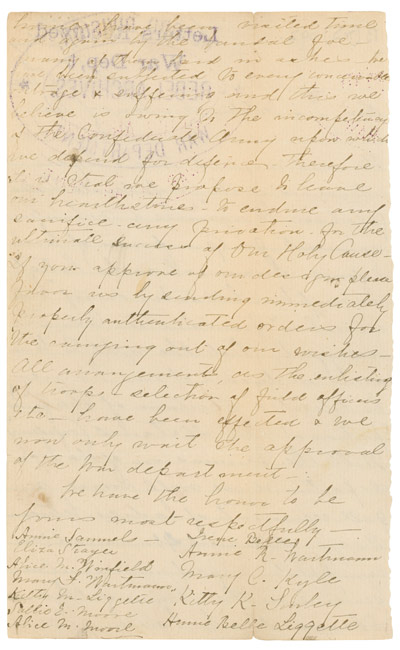 have been visited time
and again by the vandal foe
and in ashes we
have been subjected to every conceivable
outrage & suffering and this we
believe is owing to the incompetency
of the Confederate Army upon which
we depend for defense. Therefore
it is that we propose to leave
our hearthstones - to endure any
sacrifice - any privation for the
ultimate success of Our Holy Cause -
If you approve of our design please
favor us by sending immediately
properly authenticated orders for
the carrying out of our wishes -
All arrangements, as the enlisting
of troops - selection of field officers
etc - have been effected & we
now only wait the approval
of the War department -
We have the honor to be
yours most respectfully -
Annie Samuels -
Eliza Strayer
Alice M. Winfield
Mary F. Wartmann
Ketty M. Liggette
Sallie E. Moore
Alice M. Moore
Irene Belle
Annie R. Wartmann
Mary C. Kyle
Kitty K.
Hennie Belle Liggette